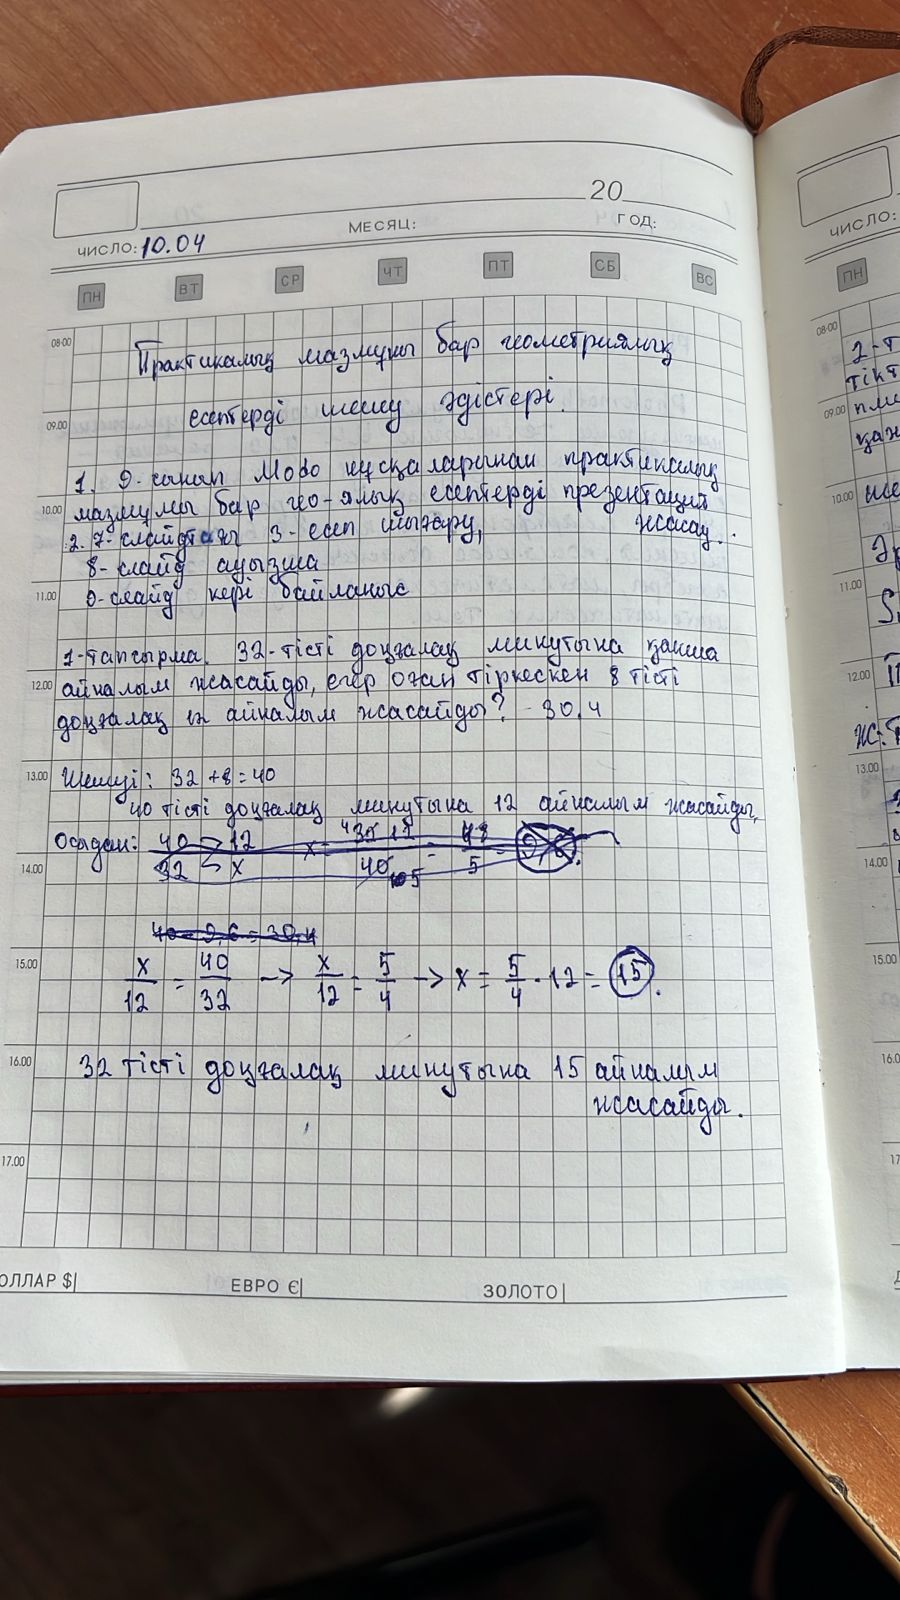 20
ЧИСЛО: 10.04 МЕСЯЦ: ГОД:
ПН ВТ СР ЧТ ПТ СБ ВС
08:00
Практикалық мазмұны бар геометриялық
09.00
есептерді шешу әдістері.
1. 9-сынып Модо нұсқаларынан практикалық
10.00
мазмұны бар гео-ялық есептерді презентация
жасау.
2. 7-слайдтағы 3-есеп шығару,
8-слайд ауызша
11.00
9-слайд кері байланыс
1-тапсырма. 32-тісті доңғалақ минутына қанша
12.00
айналым жасайды, егер оған тіркескен 8 тісті
доңғалақ 12 айналым жасайды? - 30,4
13.00
Шешуі: 32+8=40
40 тісті доңғалақ минутына 12 айналым жасайды,
Осыдан: 40 → 12
32 → x
14.00
40 - 9,6 = 30,4
15.00
x/12 = 40/32 → x/12 = 5/4 → x = 5/4 · 12 = 15.
16.00
32 тісті доңғалақ минутына 15 айналым
жасайды.
17.00
ОЛЛАР $| ЕВРО €| ЗОЛОТО|
ЧИСЛО:
ПН
08:00
2-т
тікт
09.00
10.00
11.00
12.00
13.00
14.00
15.00
16.0
17